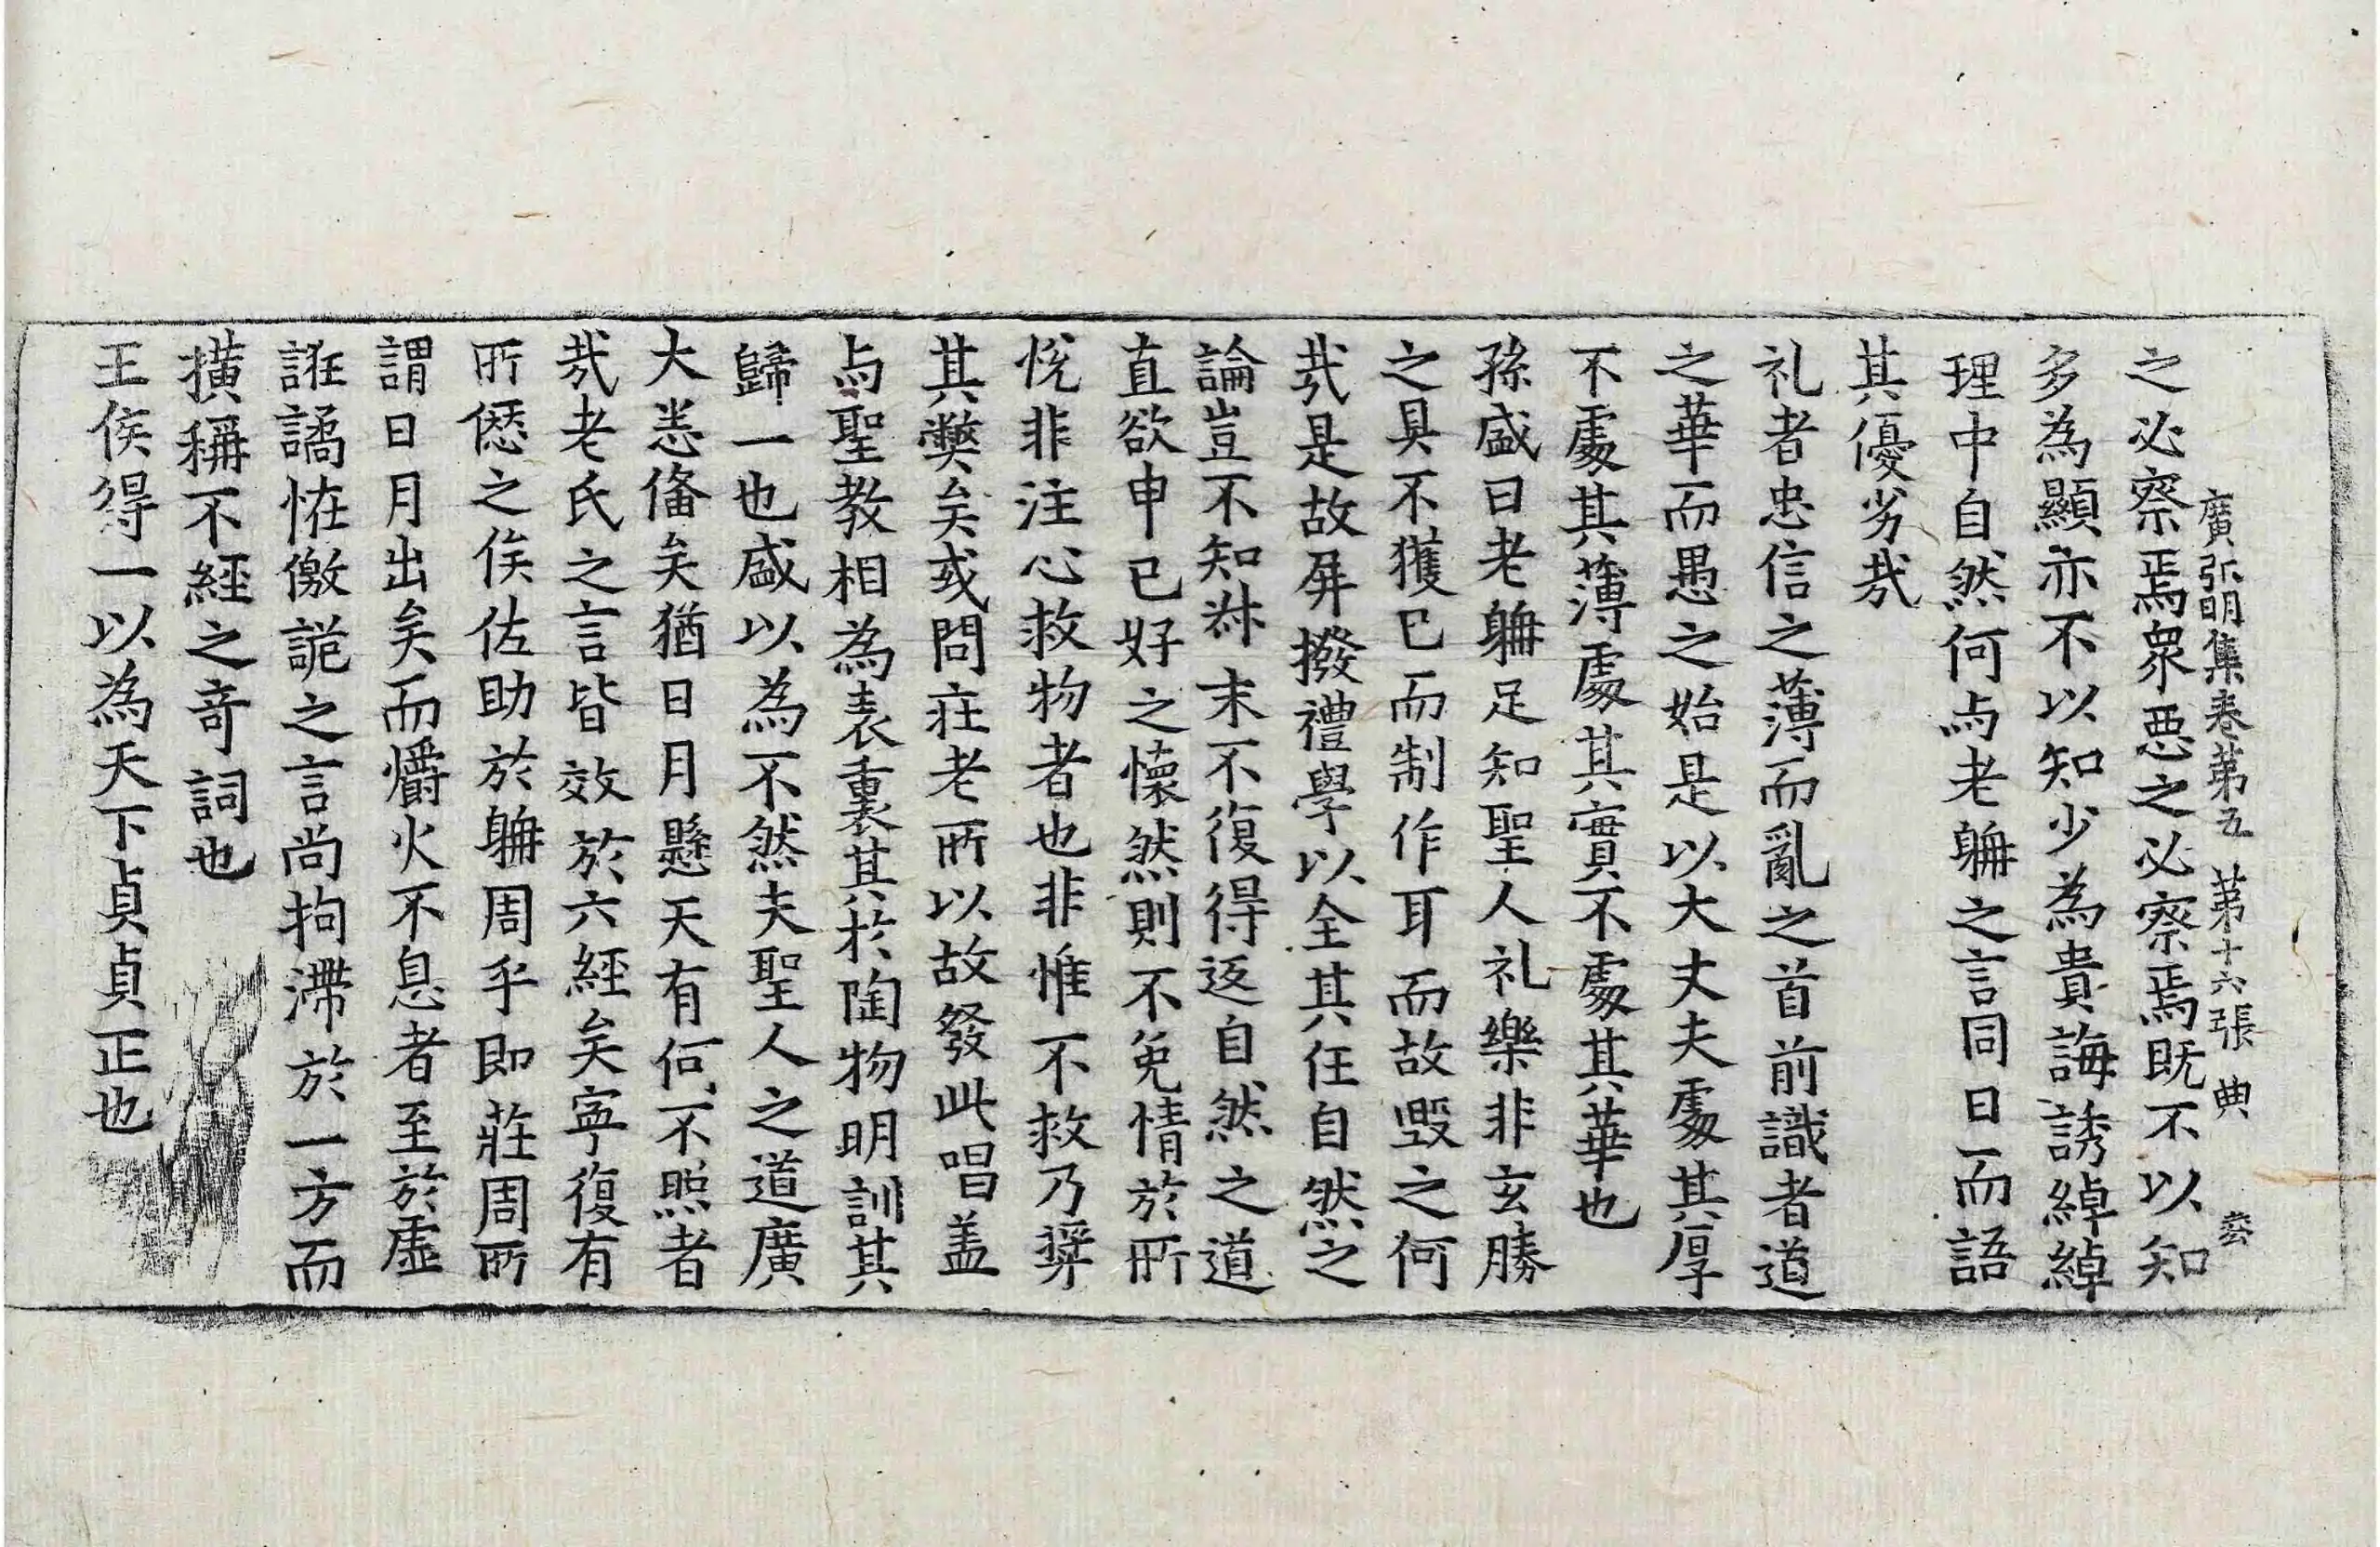 廣弘明集卷第五 第十六張 典
之必察焉衆惡之必察焉旣不以知
多為顯亦不以知少為貴誨誘綽綽
理中自然何与老耼之言同日而語
其優劣㢤
礼者忠信之薄而亂之首前識者道
之華而愚之始是以大丈夫處其厚
不處其薄處其實不處其華也
孫盛曰老耼足知聖人礼樂非玄勝
之具不獲已而制作耳而故毀之何
㢤是故屏撥禮學以全其任自然之
論豈不知叔末不復得返自然之道
直欲申已好之懷然則不免情於所
悅非注心救物者也非惟不救乃奬
其弊矣或問莊老所以故發此唱盖
与聖教相為表裏其於陶物明訓其
歸一也盛以為不然夫聖人之道廣
大悉俻矣猶日月懸天有何不照者
㢤老氏之言皆效於六經矣寕復有
所愆之俟佐助於耼周乎即莊周所
謂日月出矣而爝火不息者至於虛
誑譎恠儌詭之言尚拘滯於一方而
横稱不經之竒詞也
王侯得一以為天下貞貞正也